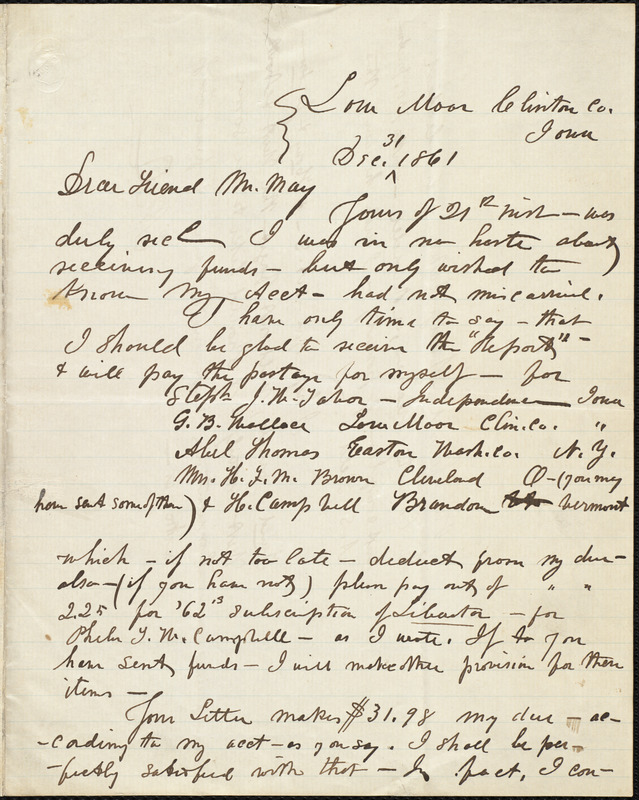 Low Moor Clinton Co.
Iowa
Dec. 31 1861
Dear Friend Mr. May
Yours of 21st inst — was
duly rec'd I was in no haste about
receiving funds — but only wished to
know my Acct — had not miscarried.
I have only time to say — that
I should be glad to receive the "Reports" —
& will pay the postage for myself — for
Steph J. W. Tabor — Independence Iowa
G. B. Wallace Low Moor Clin. Co. "
Abel Thomas Easton Wash. Co. N. Y.
Mrs. H. F. M. Brown Cleveland O — (you may
have sent some of them) & H. Campbell Brandon Vermont
which — if not too late — deduct from my due —
also — (if you have not) please pay out of " "
2.25 for '62's subscription of Liberator — for
T. M. Campbell — as I wrote. If to you
have sent funds — I will make other provision for these
items —
Your Letter makes $31.98 my due — ac-
-cording to my acct — as you say. I shall be per-
-fectly satisfied with that — In fact, I con-